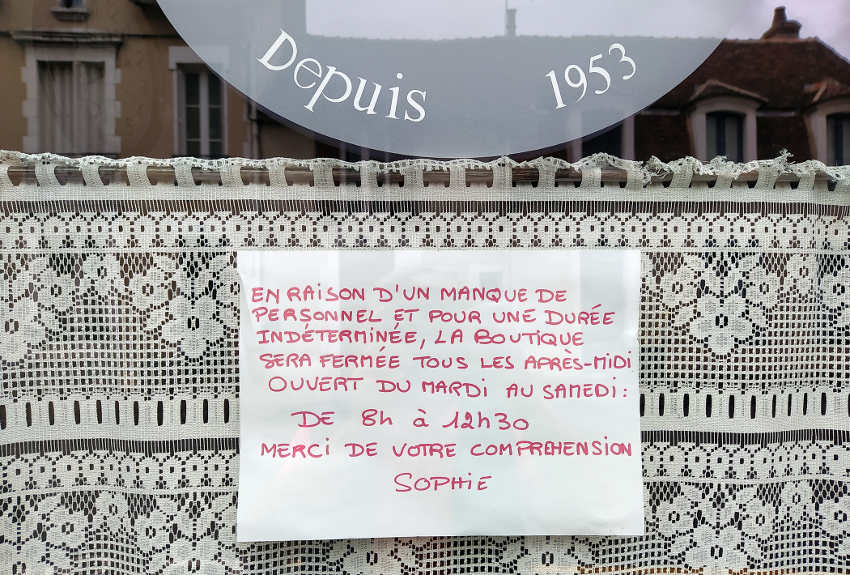 Depuis 1953
EN RAISON D'UN MANQUE DE
PERSONNEL ET POUR UNE DURÉE
INDÉTERMINÉE, LA BOUTIQUE
SERA FERMÉE TOUS LES APRÈS-MIDI
OUVERT DU MARDI AU SAMEDI :
DE 8h à 12h30
MERCI DE VOTRE COMPREHENSION
SOPHIE